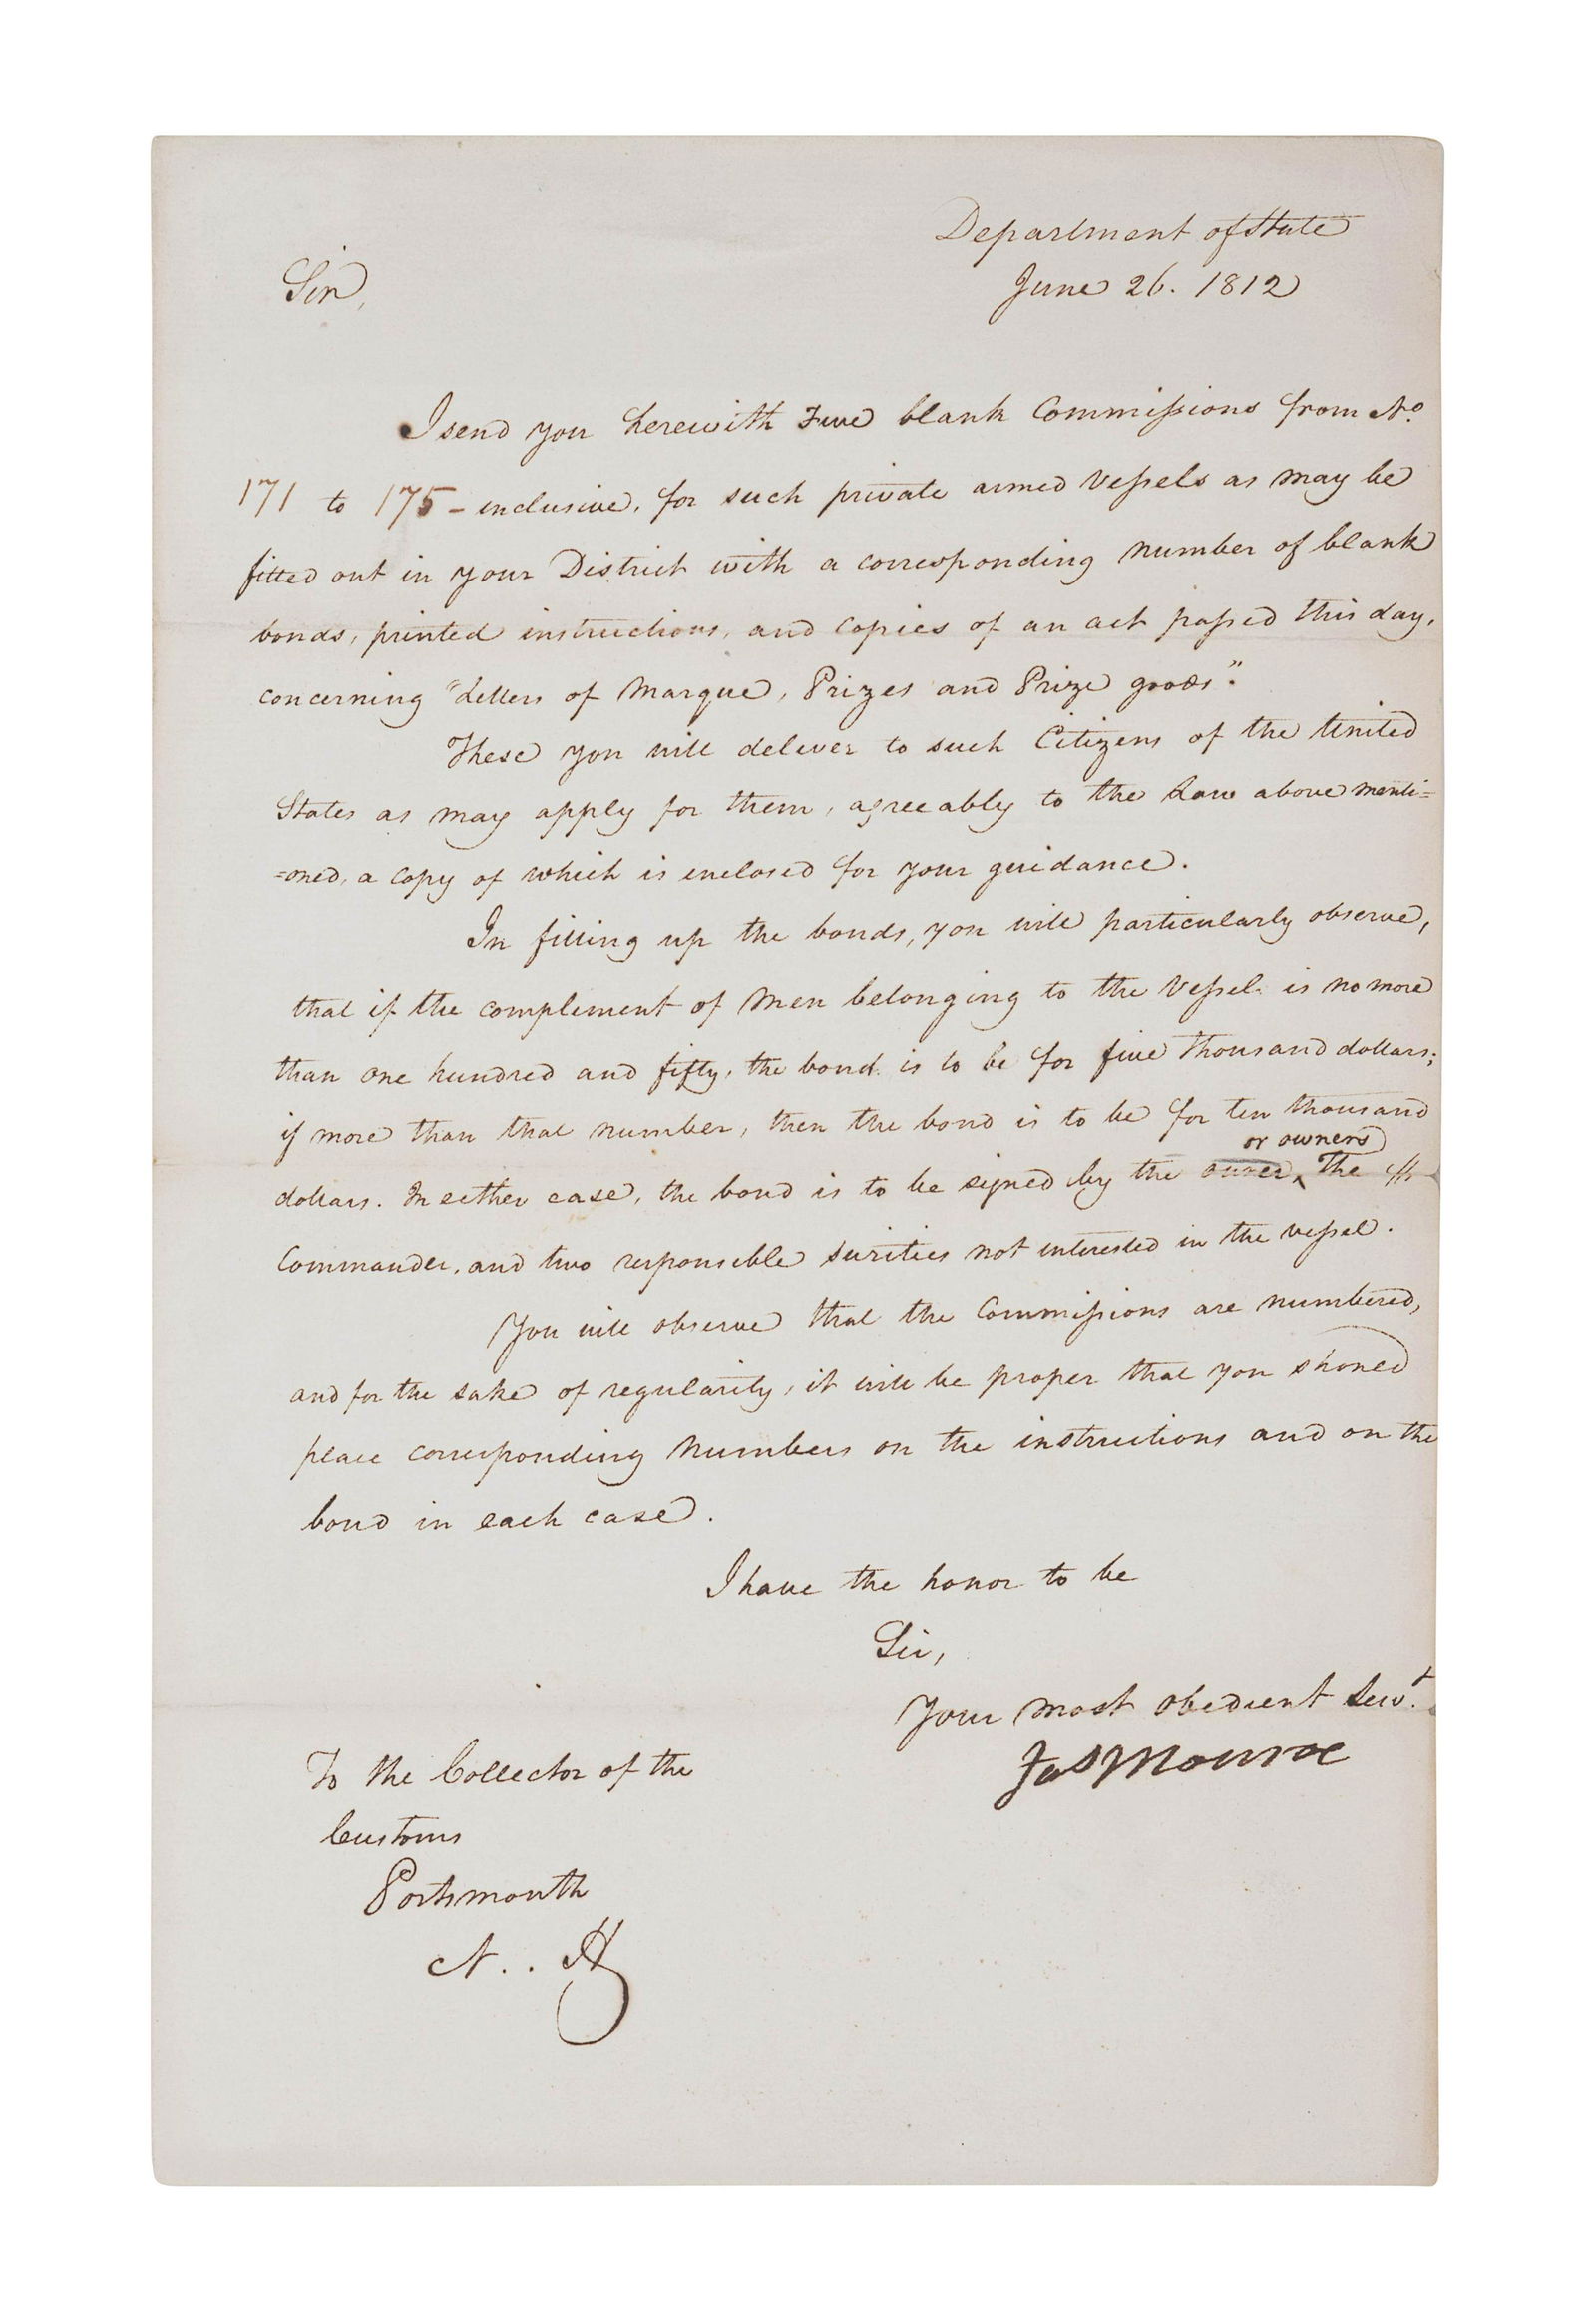 Department of State
June 26. 1812
Sir,
I send you herewith Five blank Commissions from No.
171 to 175 - inclusive, for such private armed Vessels as may be
fitted out in your District with a corresponding number of blank
bonds, printed instructions, and copies of an act passed this day,
concerning "Letters of Marque, Prizes and Prize goods".
These you will deliver to such Citizens of the United
States as may apply for them, agreeably to the Law above menti=
=oned, a copy of which is enclosed for your guidance.
In filling up the bonds, you will particularly observe,
that if the complement of Men belonging to the Vessel is no more
than one hundred and fifty, the bond is to be for five thousand dollars;
if more than that number, then the bond is to be for ten thousand
or owners
dollars. In either case, the bond is to be signed by the owner, the
Commander, and two responsible surities not interested in the vessel.
You will observe that the Commissions are numbered,
and for the sake of regularity, it will be proper that you should
place corresponding Numbers on the instructions and on the
bond in each case.
I have the honor to be
Sir,
Your most obedient Servt.
Jas Monroe
To the Collector of the
Customs
Portsmouth
N.. H